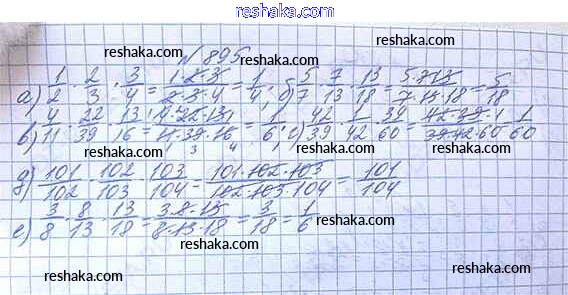 www.reshaka.com
N 895
reshaka.com reshaka.com
а) 1/2 · 2/3 · 3/4 = 1·2·3/2·3·4 = 1/4; б) 5/7 · 7/13 · 13/18 = 5·7·13/7·13·18 = 5/18
в) 4/11 · 22/39 · 13/16 = 4·22·13/11·39·16 = 1/6; г) 42/39 · 1/42 · 39/60 = 42·39·1/39·42·60 = 1/60
reshaka.com reshaka.com reshaka.com
д) 101/102 · 102/103 · 103/104 = 101·102·103/102·103·104 = 101/104
reshaka.com
е) 3/8 · 8/13 · 13/18 = 3·8·13/8·13·18 = 3/18 = 1/6
reshaka.com
reshaka.com
reshaka.com reshaka.com